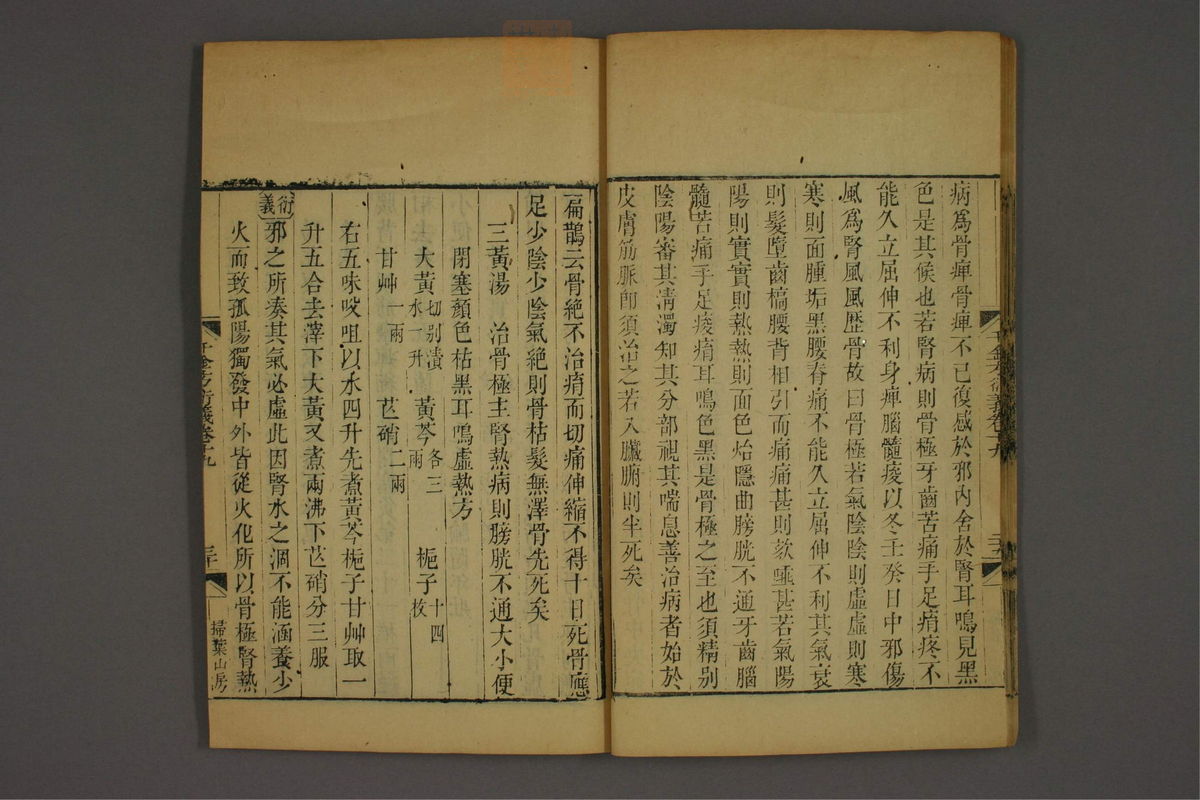 病爲骨痺骨痺不已復感於邪内舍於腎耳鳴見黑
色是其候也若腎病則骨極牙齒苦痛手足痟疼不
能久立屈伸不利身痺腦髓痠以冬壬癸日中邪傷
風爲腎風風歷骨故曰骨極若氣陰陰則虛虛則寒
寒則面腫垢黑腰脊痛不能久立屈伸不利其氣衰
則髮墮齒槁腰背相引而痛痛甚則欬唾甚若氣陽
陽則實實則熱熱則面色炲隱曲膀胱不通牙齒腦
髓苦痛手足痠痟耳鳴色黑是骨極之至也須精别
陰陽審其清濁知其分部視其喘息善治病者始於
皮膚筋脈即須治之若入臟腑則半死矣
扁鵲云骨絶不治痟而切痛伸縮不得十日死骨應
足少陰少陰氣絶則骨枯髮無澤骨先死矣
三黃湯　治骨極主腎熱病則膀胱不通大小便
閉塞顏色枯黑耳鳴虛熱方
大黃切别漬水一升　黃芩各三兩　梔子十四枚
甘艸一兩　芒硝二兩
右五味㕮咀以水四升先煮黃芩梔子甘艸取一
升五合去滓下大黃又煮兩沸下芒硝分三服
衍義邪之所湊其氣必虛此因腎水之涸不能涵養少
火而致孤陽獨發中外皆從火化所以骨極腎熱
千金方衍義卷十九
三十
掃葉山房